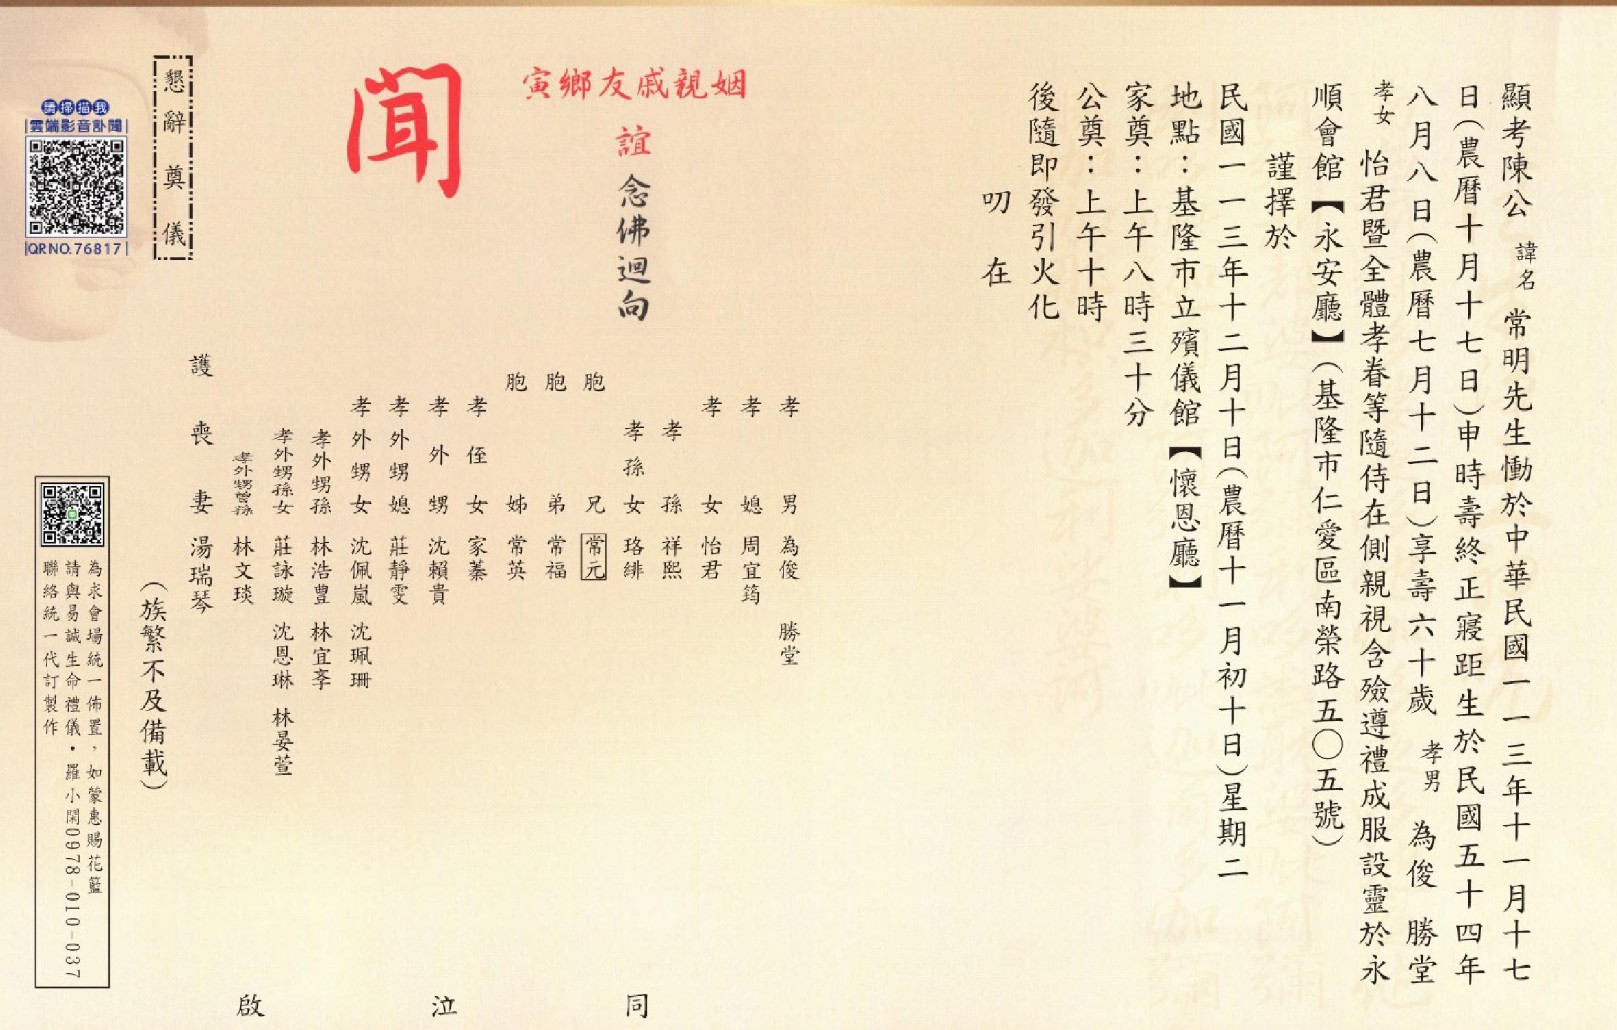 顯考陳公諱名常明先生慟於中華民國一一三年十一月十七
日(農曆十月十七日)申時壽終正寢距生於民國五十四年
八月八日(農曆七月十二日)享壽六十歲 孝男 為俊 勝堂
孝女 怡君暨全體孝眷等隨侍在側親視含殮遵禮成服設靈於永
順會館【永安廳】(基隆市仁愛區南榮路五〇五號)
謹擇於
民國一一三年十二月十日(農曆十一月初十日)星期二
地點：基隆市立殯儀館【懷恩廳】
家奠：上午八時三十分
公奠：上午十時
後隨即發引火化
叨在
姻親戚友鄉寅
誼 念佛迴向
聞
孝男 為俊 勝堂
孝媳 周宜筠
孝女 怡君
孝孫 祥熙
孝孫女 珞緋
胞兄 常元
胞弟 常福
胞姊 常英
孝侄女 家蓁
孝外甥 沈賴貴
孝外甥媳 莊靜雯
孝外甥女 沈佩嵐 沈珮珊
孝外甥孫 林浩豊 林宜葶
孝外甥孫女 莊詠璇 沈恩琳 林晏萱
孝外甥曾孫 林文琰
護喪妻 湯瑞琴
(族繁不及備載)
同泣啟
懇辭奠儀
請掃描我
雲端影音訃聞
QR NO.76817
為求會場統一佈置，如蒙惠賜花籃
請與易誠生命禮儀・羅小閑0978-010-037
聯絡統一代訂製作